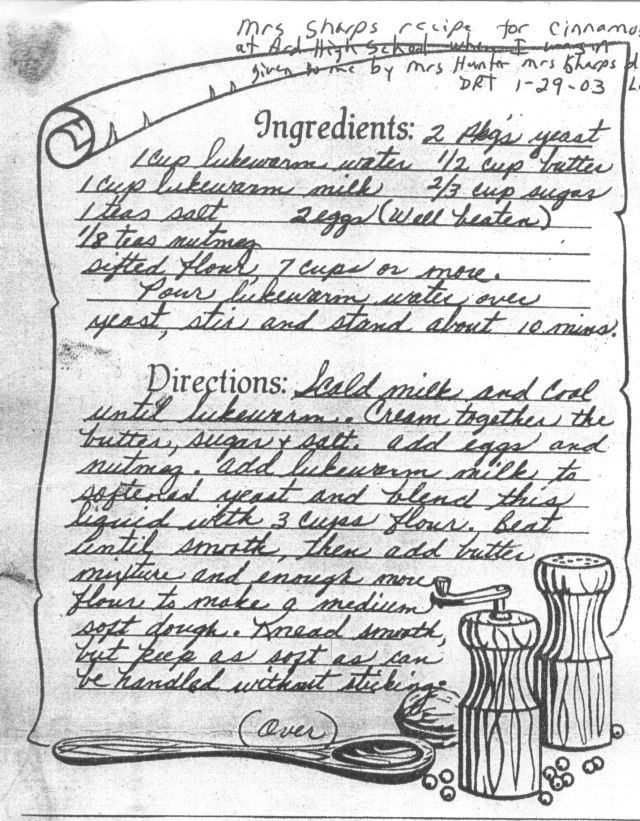 Mrs Sharps recipe for cinnamo
at Ard High School when I
given to me by Mrs Hunter Mrs Sharps d
DRT 1-29-03
Ingredients: 2 Pkg's yeast
1 cup lukewarm water 1/2 cup butter
1 cup lukewarm milk 2/3 cup sugar
1 teas salt 2 eggs (well beaten)
1/8 teas nutmeg
sifted flour, 7 cups or more.
Pour lukewarm water over
yeast, stir and stand about 10 mins.
Directions: Scald milk and cool
until lukewarm. Cream together the
butter, sugar & salt. add eggs and
nutmeg. add lukewarm milk to
softened yeast and blend this
liquid with 3 cups flour. Beat
until smooth, then add butter
mixture and enough more
flour to make a medium
soft dough. Knead smooth,
but keep as soft as can
be handled without sticking.
(Over)